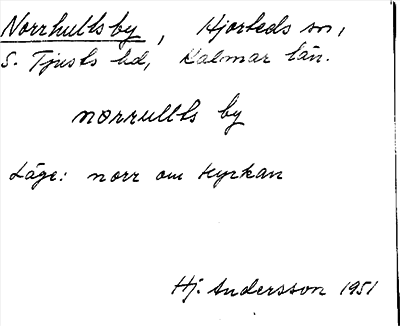 Norrhults by, Hjorteds sn,
S. Tjusts hd, Kalmar län.
norrullts by
Läge: norr om kyrkan
Hj. Andersson 1951